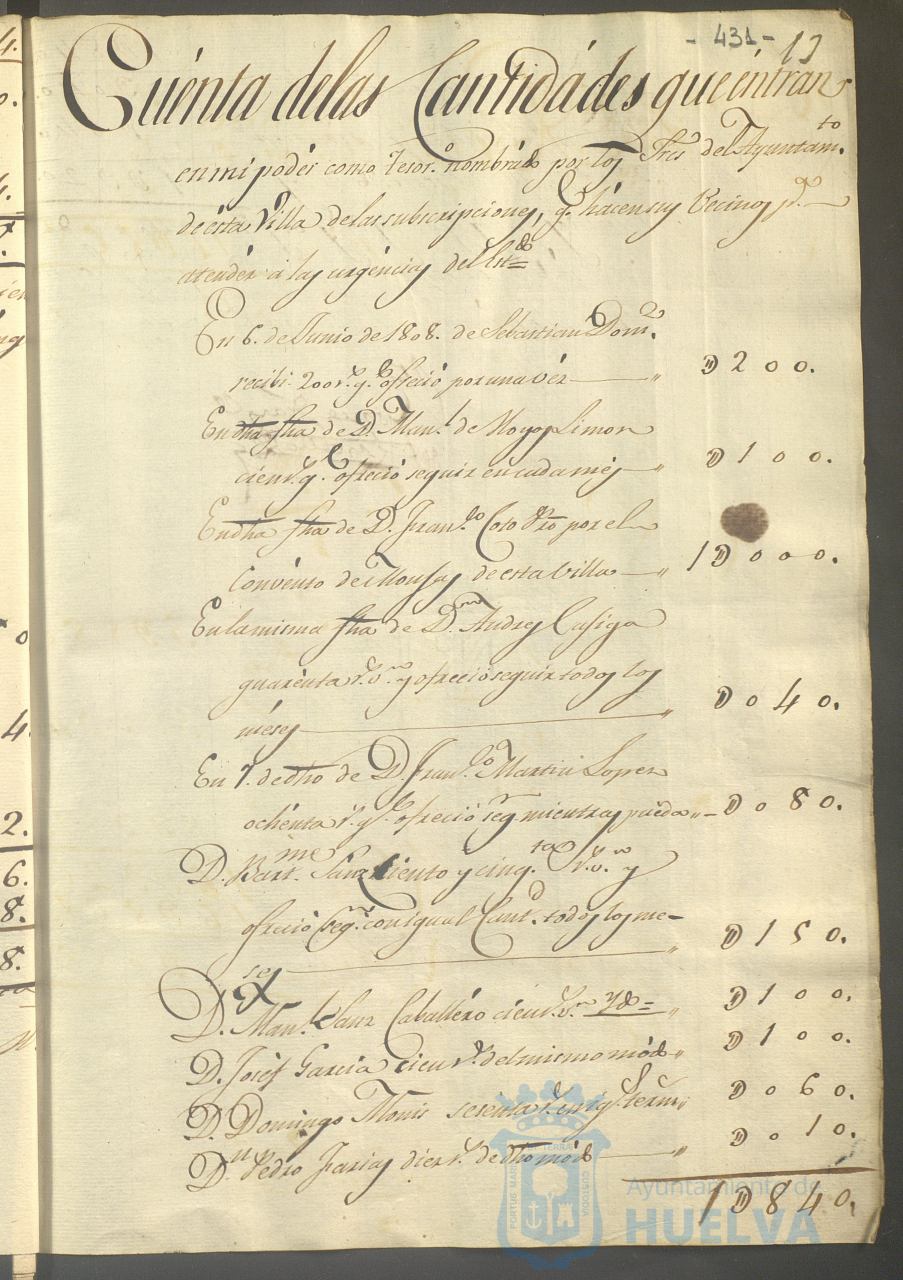 - 431 - 13
Cuénta delas Cantidádes que éntran
en mi podér como Tesor.º nombrádo por los Sres del Ayuntam.to
de ésta Villa delas subscripciones, q.e hácen sus Vecinos p.a
atendér á las urgéncias del Est.do =
En 6. de Junio de 1808. de Sebastian Dom.z
recibi 200 r.s q.e ofreció por una véz „ D 2 0 0.
En dha fha de D. Man.l de Hoyos Limon
cien r.s q.e ofreció seguir en cada més „ D 1 0 0.
En dha fha de D. Fran.co Coto Pro por el
Convénto de Monjas de esta Villa „ 1 D 0 0 0.
En la misma fha de D.n Andres
quarénta r.s v.n y ofreció seguir todos los
méses „ D 0 4 0.
En 7. de dho de D. Fran.co Martin Lopez
ochénta r.s q.e ofreció seg.r mientras puéda „ D 0 8 0.
D. Bart.me Sanz Ciento y cinq.ta r.s v.n y
ofreció seg.r con igual Cant.d todos los me-
ses „ D 1 5 0.
D. Man.l Sanz Caballéro cién r.s v.n Yd = „ D 1 0 0.
D. Joséf García cien r.s del mismo módo „ D 1 0 0.
D. Domingo Monis sesenta r.s en ig.s term.s „ D 0 6 0.
D.n Pedro Farias diez r.s de dho módo „ D 0 1 0.
1 D 8 4 0.
PORTUS MARIS ET TERRAE CUSTODIA
Ayuntamiento de
HUELVA